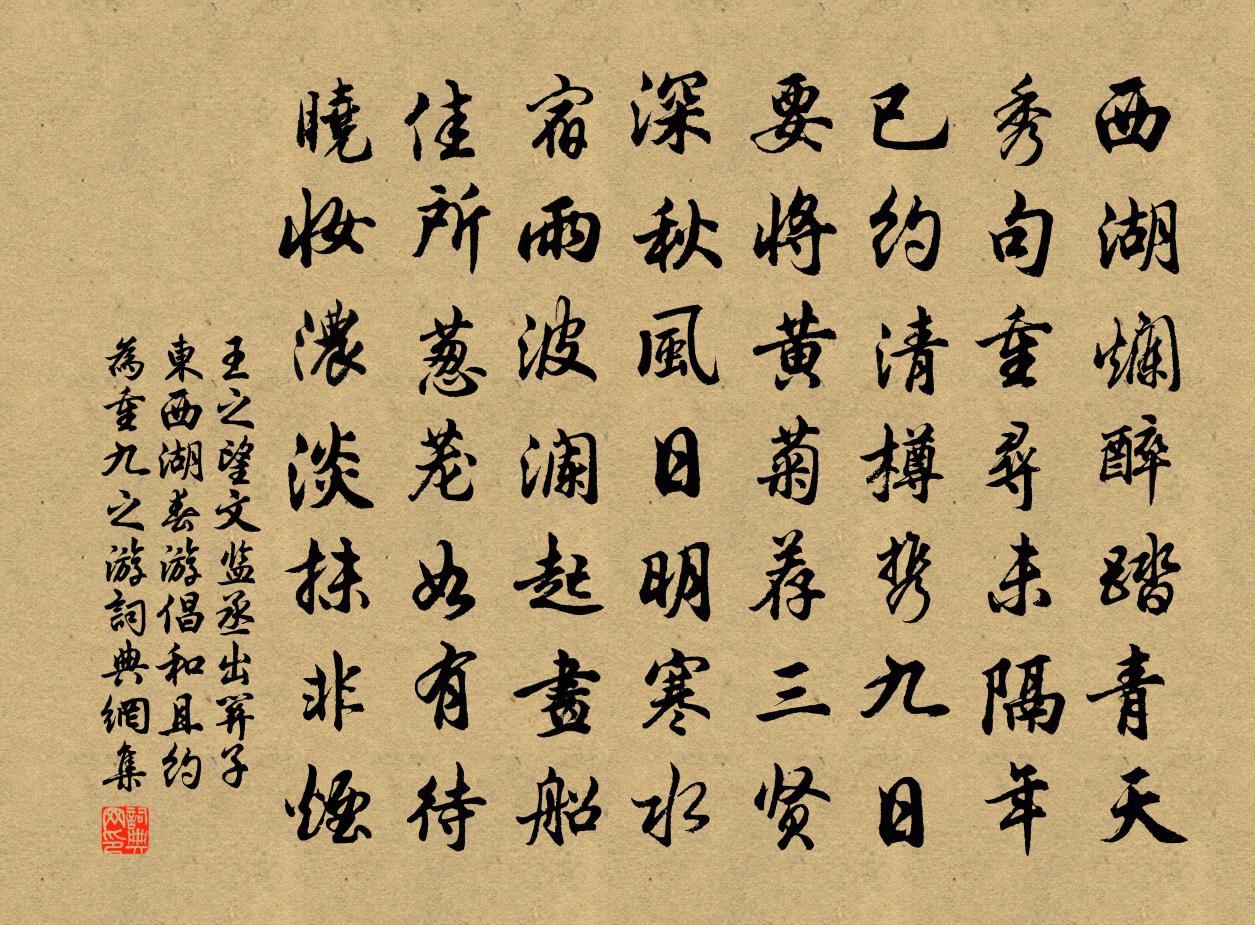 西湖爛醉踏青天
秀句重尋未隔年
已約清樽携九日
要將黃菊荐三贤
深秋風日明寒水
宿雨波澜起畫船
佳所葱茏如有待
曉妆濃淡抹非煙
王之望文监丞出羿子
東西湖春游倡和且約
為重九之游詞典網集
詞典
网印